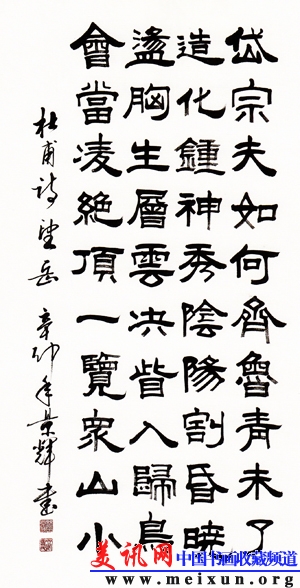 岱宗夫如何齊魯青未了
造化鍾神秀陰陽割昏曉
盪胸生層雲決眥入歸鳥
會當凌絕頂一覽衆山小
杜甫詩望岳 辛卯年景輝書
美讯网 中国书画收藏频道
www.meixun.org